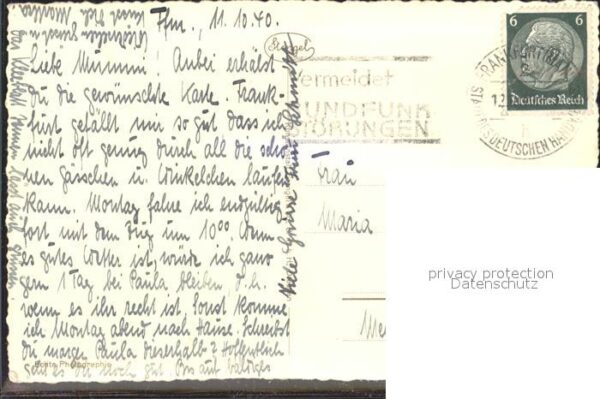 Ffm., 11.10.40.
Liebe Mimmm! Anbei erhälst
du die gewünschte Karte. Frank-
furt gefällt mir so gut dass ich
nicht oft genug durch all die schö-
nen Gässchen u. Winkelchen laufen
kann. Montag fahre ich endgültig
fort mit dem Zug um 10⁰⁰. Wenn
es gutes Wetter ist, würde ich ganz
gern 1 Tag bei Paula bleiben, d.h.
wenn es ihr recht ist. Sonst komme
ich Montag abend nach Hause. Schreibst
du morgen Paula dieserhalb? Hoffentlich
geht es dir noch gut. Bis auf baldiges
Viele Grüsse
Echte Photographie
Vermeidet
RUNDFUNK
STÖRUNGEN
FRANKFURT (MAIN)
STADT DES DEUTSCHEN HAND
6 6
Deutsches Reich
Frau
Maria
Me
privacy protection
Datenschutz